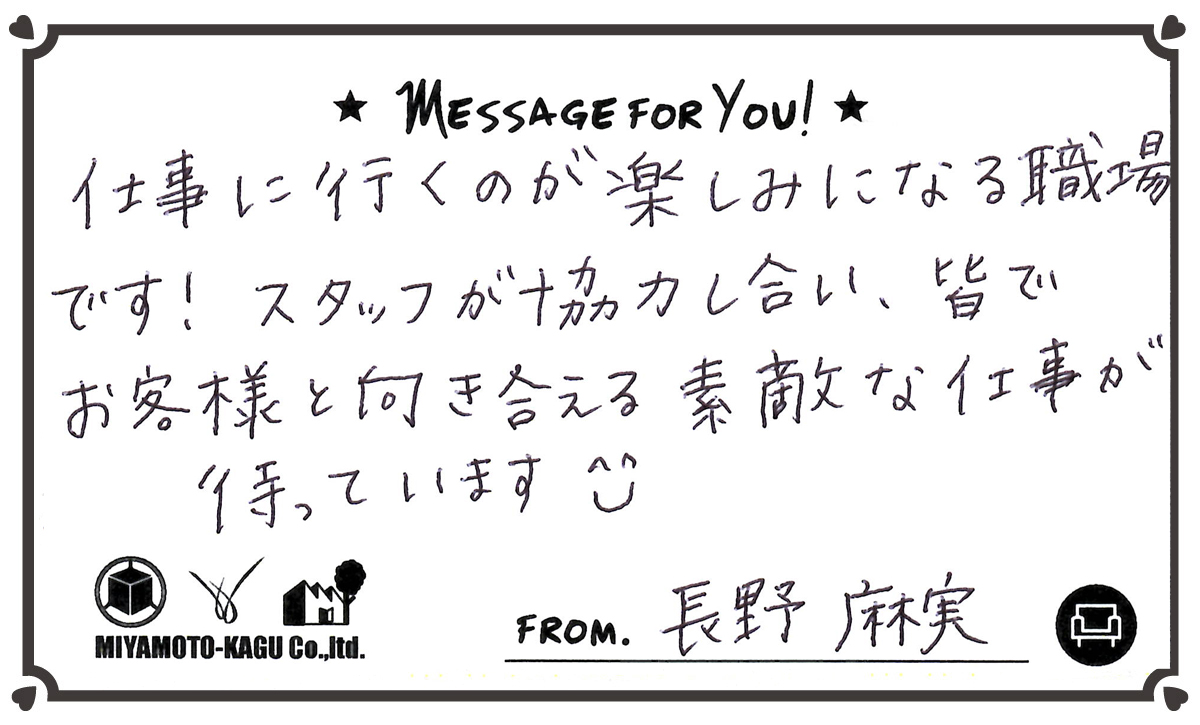 ★ MESSAGE FOR YOU! ★
仕事に行くのが楽しみになる職場
です! スタッフが協力し合い、皆で
お客様と向き合える素敵な仕事が
待っています
MIYAMOTO-KAGU Co.,ltd.
FROM. 長野 麻実